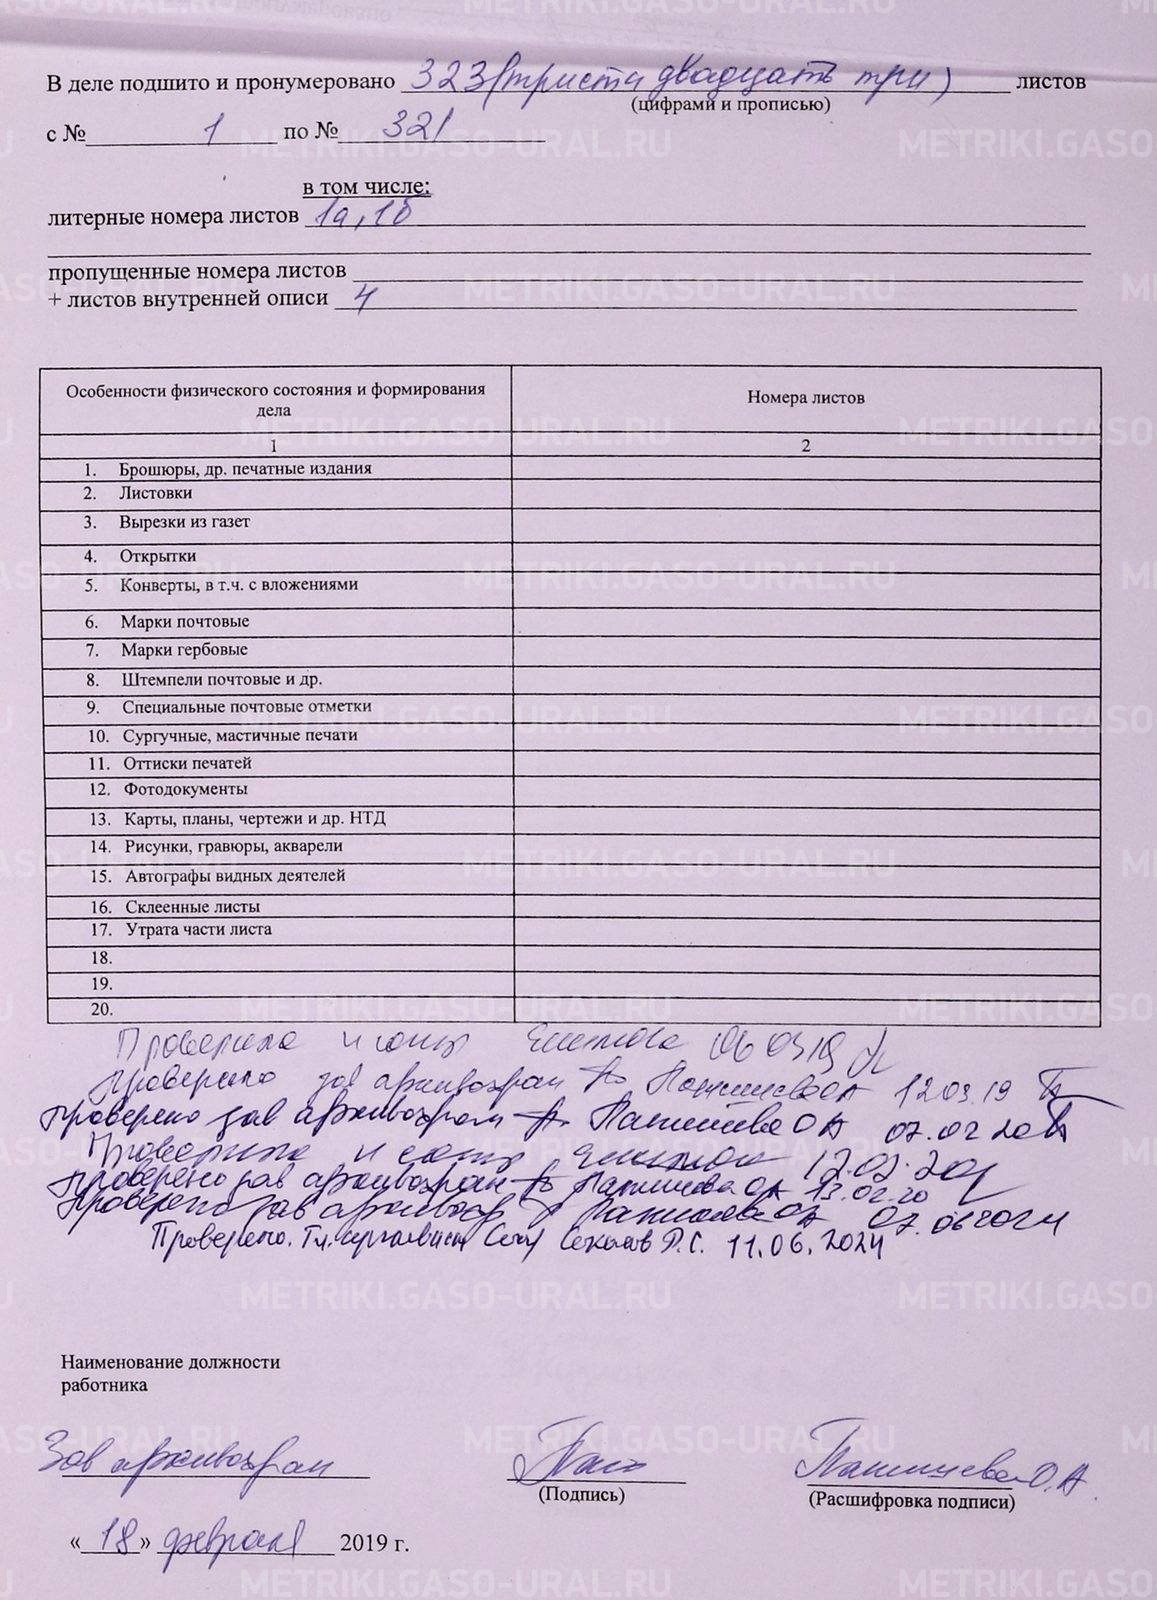 В деле подшито и пронумеровано 323 (триста двадцать три) листов
(цифрами и прописью)
с № 1 по № 321
в том числе:
литерные номера листов 1а, 1б
пропущенные номера листов
+ листов внутренней описи 4
Особенности физического состояния и формирования дела Номера листов
1 2
1. Брошюры, др. печатные издания
2. Листовки
3. Вырезки из газет
4. Открытки
5. Конверты, в т.ч. с вложениями
6. Марки почтовые
7. Марки гербовые
8. Штемпели почтовые и др.
9. Специальные почтовые отметки
10. Сургучные, мастичные печати
11. Оттиски печатей
12. Фотодокументы
13. Карты, планы, чертежи и др. НТД
14. Рисунки, гравюры, акварели
15. Автографы видных деятелей
16. Склеенные листы
17. Утрата части листа
18.
19.
20.
Проверила 06 03 19
Проверено зав архивохран 12.03.19
Проверено зав архивохран О А 07.02
Проверила
Проверено зав архивохран О А 13.02.20
Проверено зав архивохр О А 07.06 2024
Проверено. Гл. Р.С. 11.06.2024
Наименование должности
работника
Зав архивохран О.А.
(Подпись) (Расшифровка подписи)
« 18 » февраля 2019 г.
METRIKI.GASO-URAL.RU